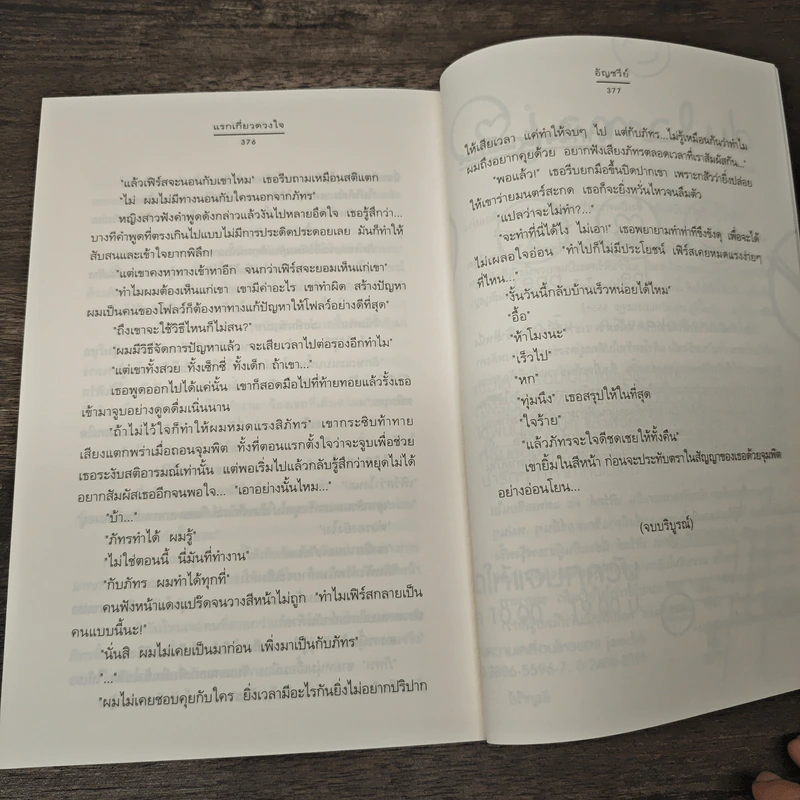 แรกเกี่ยวดวงใจ
376
"แล้วเฟิร์สจะนอนกับเขาไหม" เธอรีบถามเหมือนสติแตก
"ไม่ ผมไม่มีทางนอนกับใครนอกจากภัทร"
หญิงสาวฟังคำพูดดังกล่าวแล้วงันไปหลายอึดใจ เธอรู้สึกว่า...
บางทีคำพูดที่ตรงเกินไปแบบไม่มีการประดิดประดอยเลย มันก็ทำให้
สับสนและเข้าใจยากพิลึก!
"แต่เขาคงหาทางเข้าหาอีก จนกว่าเฟิร์สจะยอมเห็นแก่เขา"
"ทำไมผมต้องเห็นแก่เขา เขามีค่าอะไร เขาทำผิด สร้างปัญหา
ผมเป็นคนของโฟลว์ก็ต้องหาทางแก้ปัญหาให้โฟลว์อย่างดีที่สุด"
"ถึงเขาจะใช้วิธีไหนก็ไม่สน?"
"ผมมีวิธีจัดการปัญหาแล้ว จะเสียเวลาไปต่อรองอีกทำไม"
"แต่เขาทั้งสวย ทั้งเซ็กซี่ ทั้งเด็ก ถ้าเขา..."
เธอพูดออกไปได้แค่นั้น เขาก็สอดมือไปที่ท้ายทอยแล้วรั้งเธอ
เข้ามาจูบอย่างดูดดื่มเนิ่นนาน
"ถ้าไม่ไว้ใจก็ทำให้ผมหมดแรงสิภัทร" เขากระซิบท้าทาย
เสียงแตกพร่าเมื่อถอนจุมพิต ทั้งที่ตอนแรกตั้งใจว่าจะจูบเพื่อช่วย
เธอระงับสติอารมณ์เท่านั้น แต่พอเริ่มไปแล้วกลับรู้สึกว่าหยุดไม่ได้
อยากสัมผัสเธออีกจนพอใจ... "เอาอย่างนั้นไหม..."
"บ้า..."
"ภัทรทำได้ ผมรู้"
"ไม่ใช่ตอนนี้ นี่มันที่ทำงาน"
"กับภัทร ผมทำได้ทุกที่"
คนฟังหน้าแดงแปร๊ดจนวางสีหน้าไม่ถูก "ทำไมเฟิร์สกลายเป็น
คนแบบนี้นะ!"
"นั่นสิ ผมไม่เคยเป็นมาก่อน เพิ่งมาเป็นกับภัทร"
"..."
"ผมไม่เคยชอบคุยกับใคร ยิ่งเวลามีอะไรกันยิ่งไม่อยากปริปาก
อัญชรีย์
377
ให้เสียเวลา แค่ทำให้จบๆ ไป แต่กับภัทร...ไม่รู้เหมือนกันว่าทำไม
ผมถึงอยากคุยด้วย อยากฟังเสียงภัทรตลอดเวลาที่เราสัมผัสกัน..."
"พอแล้ว!" เธอรีบยกมือขึ้นปิดปากเขา เพราะกลัวว่ายิ่งปล่อย
ให้เขาร่ายมนตร์สะกด เธอก็จะยิ่งหวั่นไหวจนลืมตัว
"แปลว่าจะไม่ทำ?..."
"จะทำที่นี่ได้ไง ไม่เอา!" เธอพยายามทำท่าทีขึงขังดุ เพื่อจะได้
ไม่เผลอใจอ่อน "ทำไปก็ไม่มีประโยชน์ เฟิร์สเคยหมดแรงง่ายๆ
ที่ไหน..."
"งั้นวันนี้กลับบ้านเร็วหน่อยได้ไหม"
"อื้อ"
"ห้าโมงนะ"
"เร็วไป"
"หก"
"ทุ่มนึง" เธอสรุปให้ในที่สุด
"ใจร้าย"
"แล้วภัทรจะใจดีชดเชยให้ทั้งคืน"
เขายิ้มในสีหน้า ก่อนจะประทับตราในสัญญาของเธอด้วยจุมพิต
อย่างอ่อนโยน...
(จบบริบูรณ์)